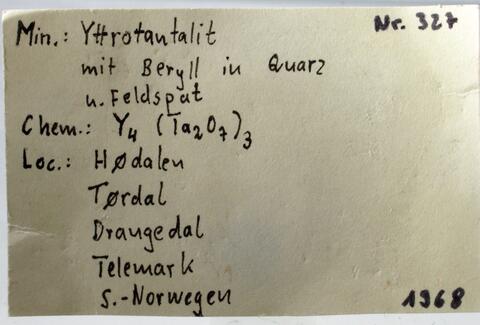 Min.: Yttrotantalit Nr. 327
mit Beryll in Quarz
u. Feldspat
Chem.: Y₄ (Ta₂O₇)₃
Loc.: Hødalen
Tørdal
Drangedal
Telemark
S.-Norwegen
1968